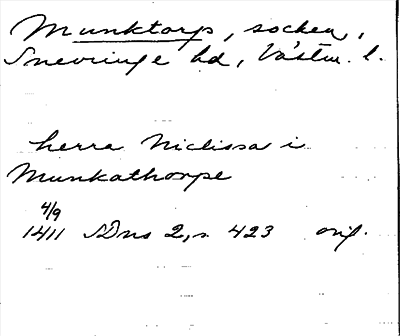 Munktorp, socken,
Snevringe hd, Västm. l.
herra Niclissa i
Munkathorpe
4/9
1411 SDns 2, s. 423 orig.